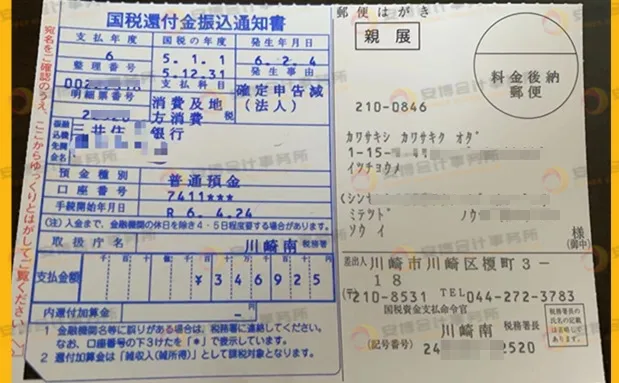 国税還付金振込通知書
支払年度
国税の年度
発生年月日
6
5.1.1
6.2.4
整理番号
5.12.31
発生事由
00
支払科目
確定申告減
(法人)
明細票番号
消費及地
方消費 税
振込先金融機関名
三井住
銀行
預金種別
普通預金
口座番号
7411***
手続開始年月日
R 6.4.24
(注)入金まで、金融機関の休日を除き4・5日程度要する場合があります。
取扱庁名
川崎南 税務署
支払金額
十 億 千 百 十 万 千 百 十 円
¥346925
内還付加算金
1 金融機関名等に誤りがある場合は、税務署に連絡してください。
なお、口座番号の下3けたを「*」で表示しています。
2 還付加算金は「雑収入(雑所得)」として課税対象となります。
宛名をご確認のうえ、ここからゆっくりとはがしてご覧ください。
郵便はがき
親展
料金後納
郵便
210-0846
カワサキシ カワサキク オダ
1-15-
イツチョウメ
(シン
ミテツド
ノウ
ソウイ
様
(御中)
差出人 川崎市川崎区榎町3-
18
(〒)210-8531 TEL044-272-3783
国税資金支払命令官
川崎南 税務署長
(記号番号) 24 2520
税務署長の
氏名の記載
は省略して
あります。
安博会计事务所